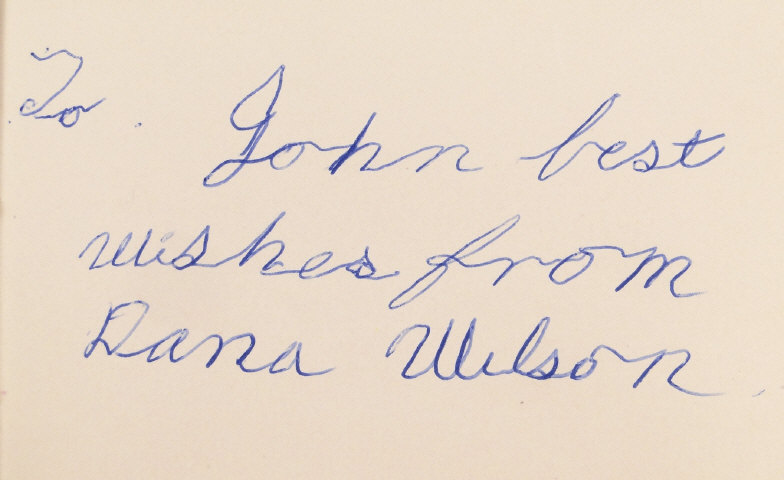 To. John best
wishes from
Dana Wilson.